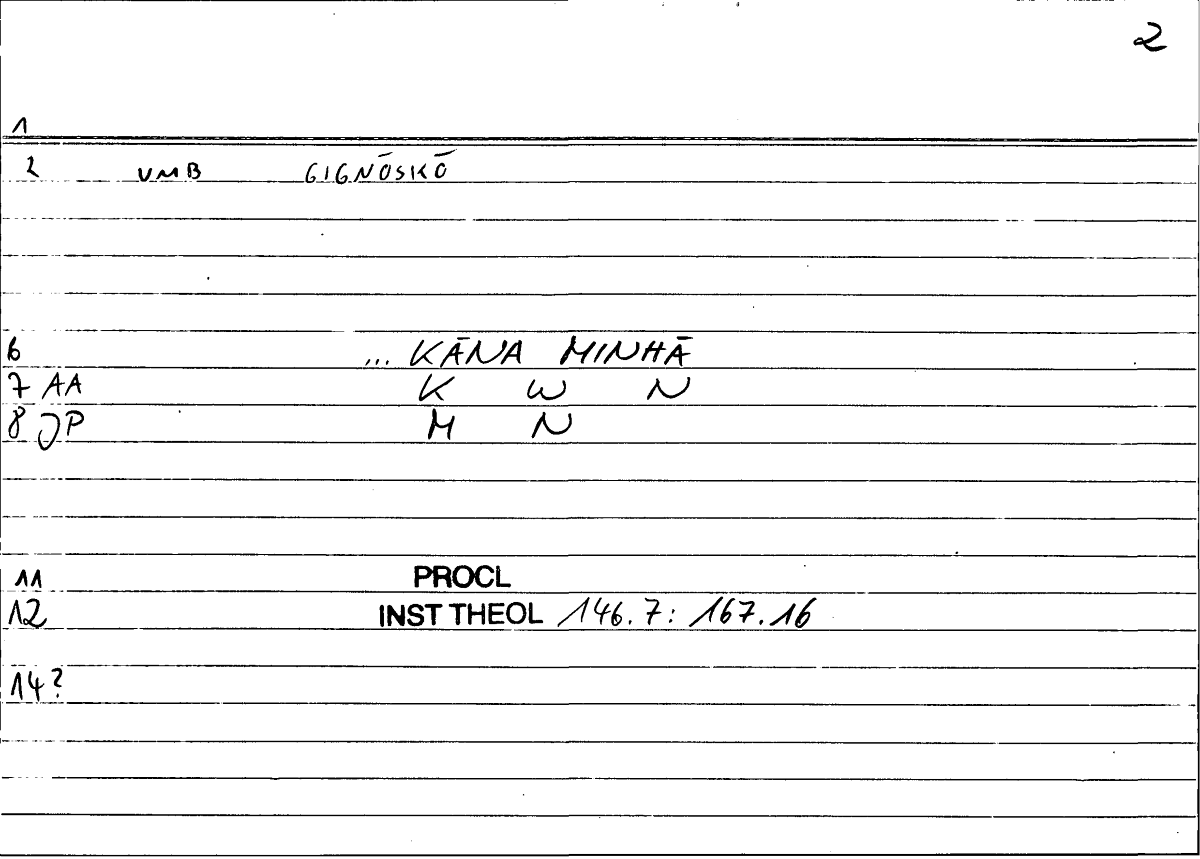 2
1
2 VMB GIGNŌSKŌ
6 ... KĀNA MINHĀ
7 AA K W N
8 JP M N
11 PROCL
12 INST THEOL 146.7: 167.16
14?